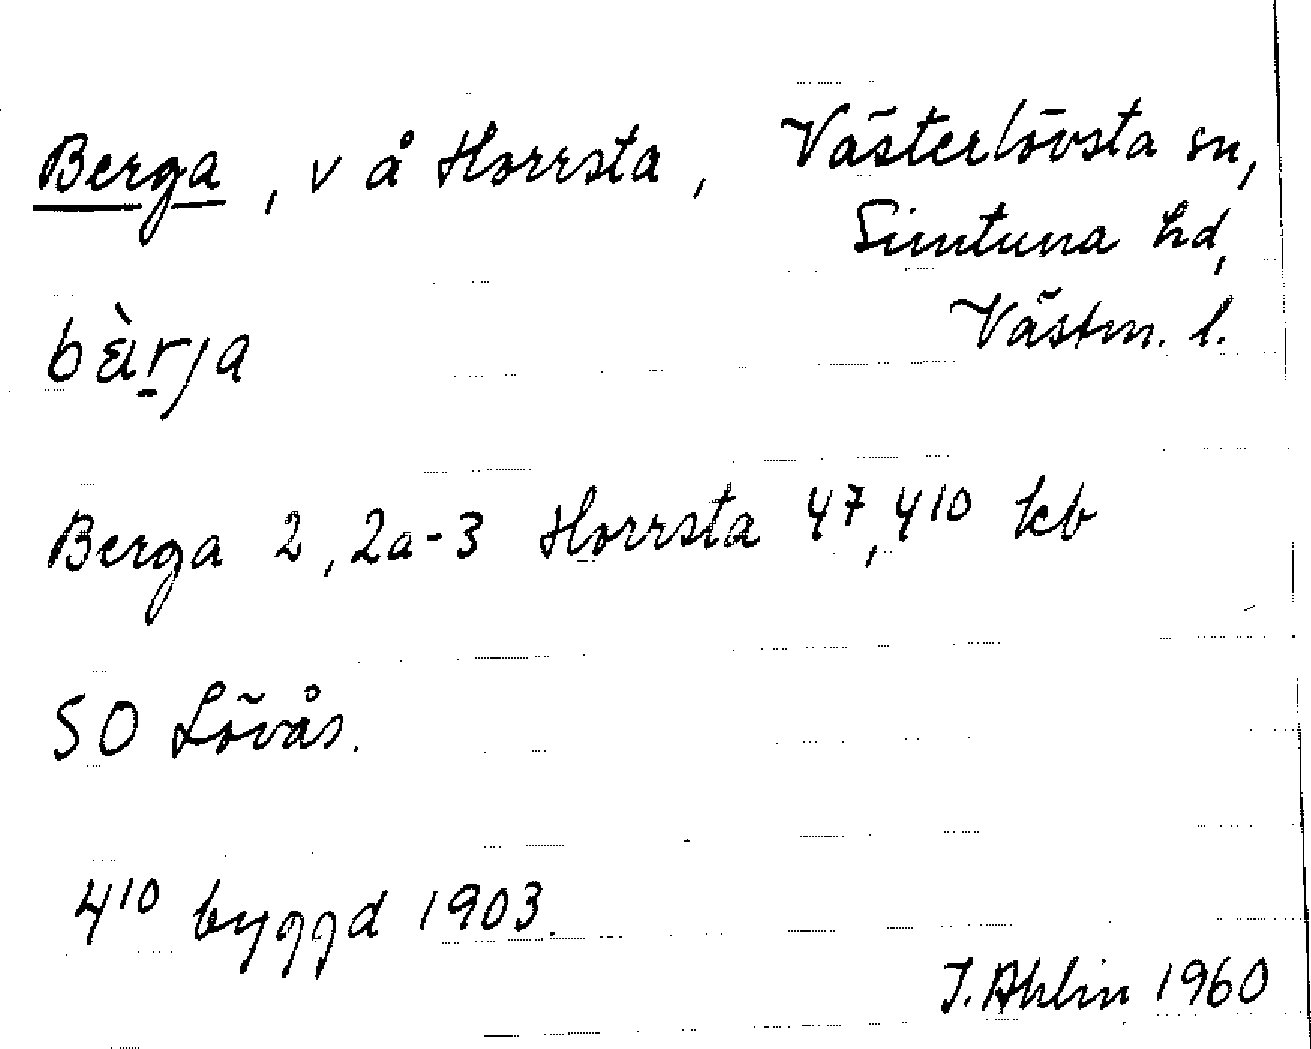 Berga, v å Horrsta, Västerlövsta sn,
Simtuna hd,
Västm. l.
bàrja
Berga 2, 2a-3 Horrsta 4⁷, 4¹⁰ kb
SO Lövås.
4¹⁰ byggd 1903.
J. Ahlin 1960